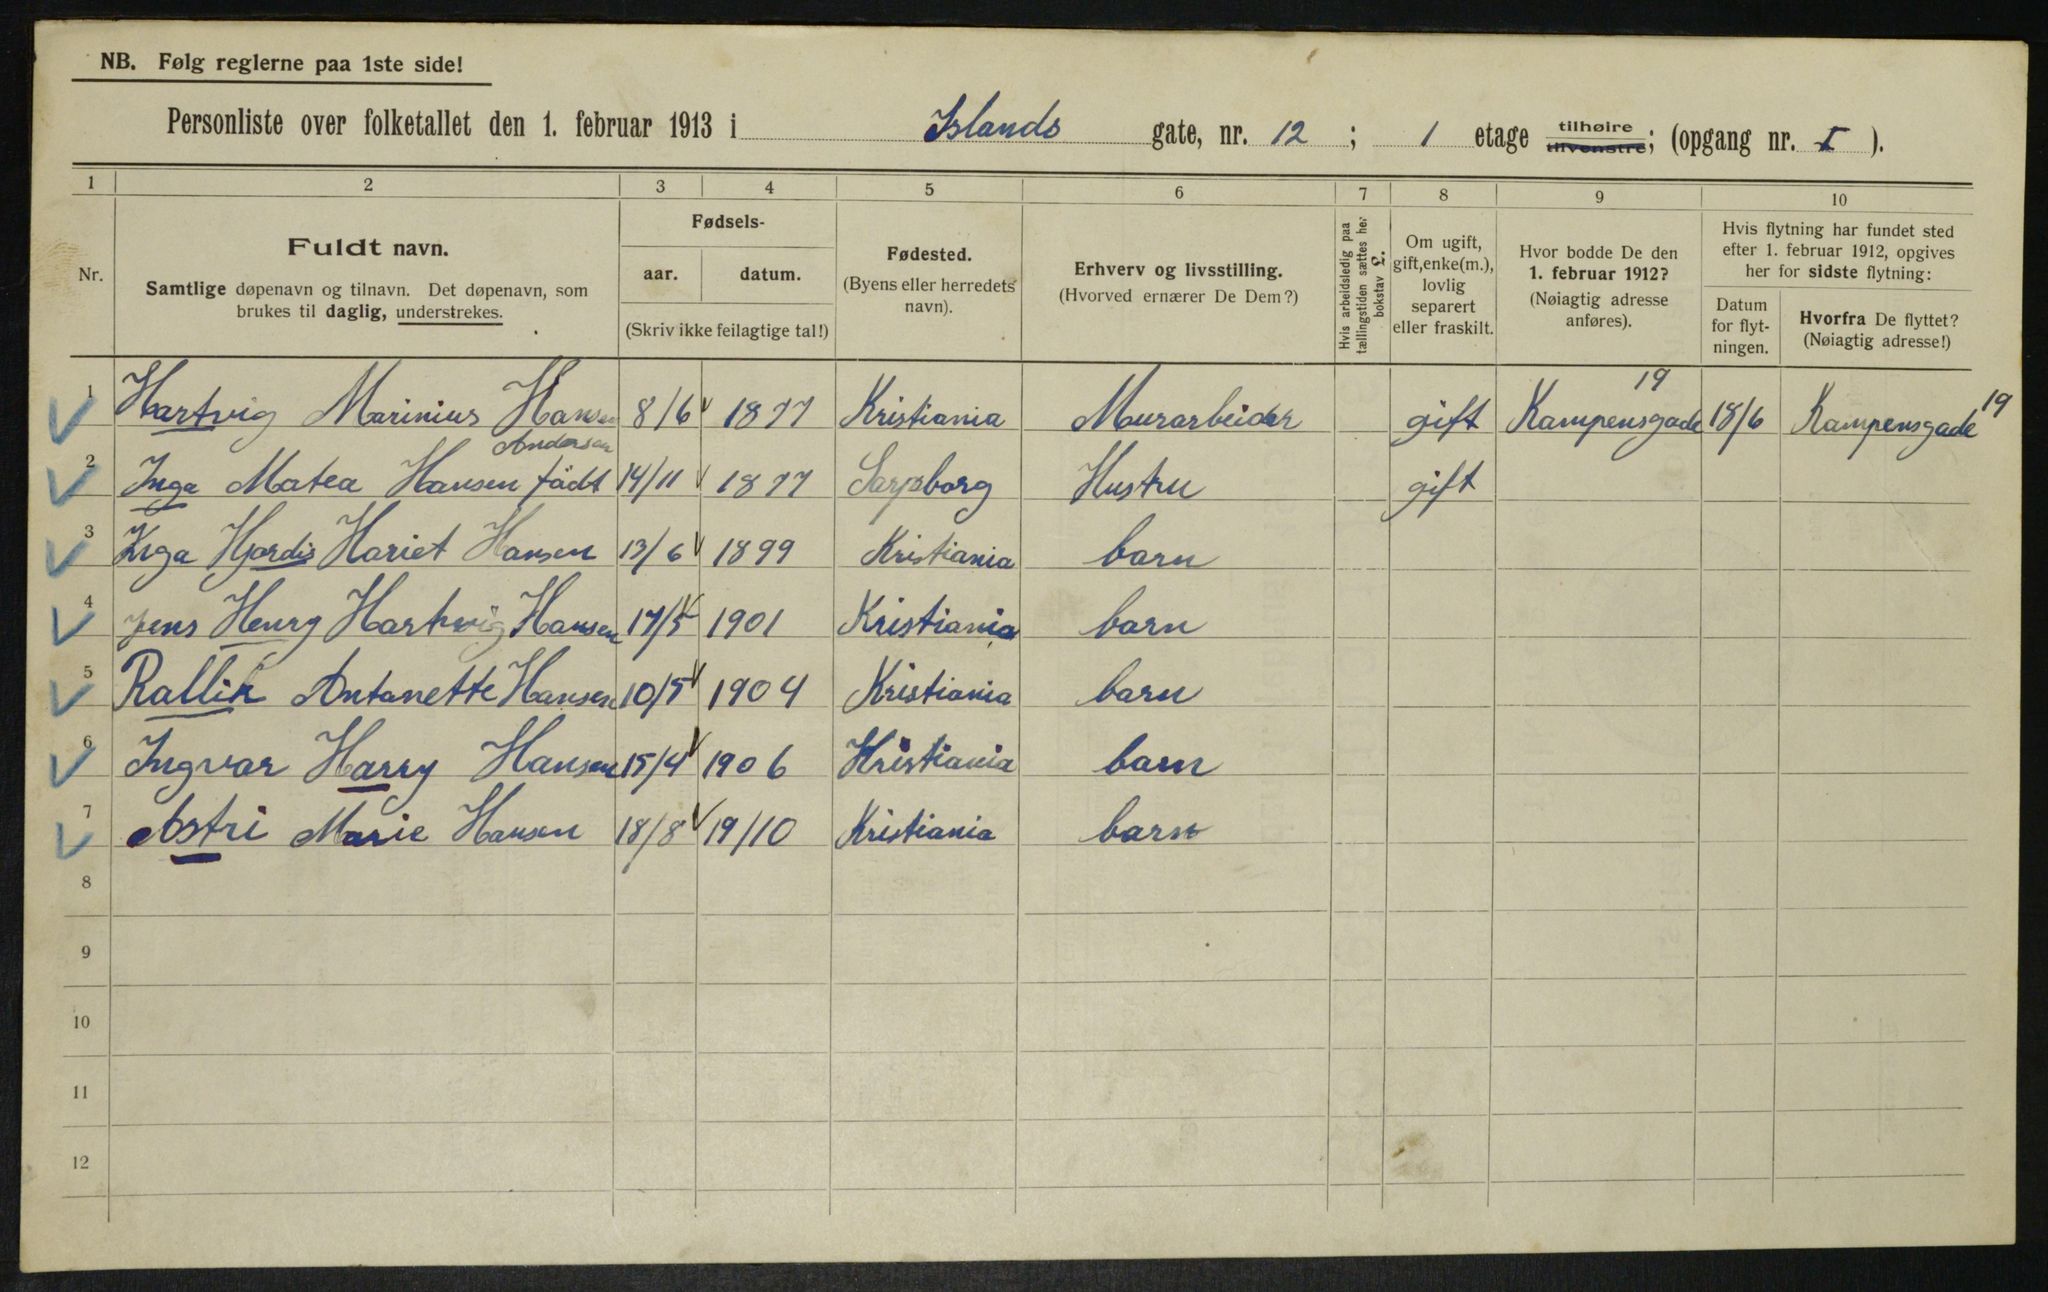 NB. Følg reglerne paa 1ste side!
Personliste over folketallet den 1. februar 1913 i Islands gate, nr. 12 ; 1 etage tilhøire tilvenstre; (opgang nr. I ).
1 2 3 4 5 6 7 8 9 10
Nr.
Fuldt navn.
Samtlige døpenavn og tilnavn. Det døpenavn, som
brukes til daglig, understrekes.
Fødsels-
aar. datum.
(Skriv ikke feilagtige tal!)
Fødested.
(Byens eller herredets
navn).
Erhverv og livsstilling.
(Hvorved ernærer De Dem?)
Hvis arbeidsledig paa
tællingstiden sættes her
bokstav L.
Om ugift,
gift, enke(m.),
lovlig
separert
eller fraskilt.
Hvor bodde De den
1. februar 1912?
(Nøiagtig adresse
anføres).
Hvis flytning har fundet sted
efter 1. februar 1912, opgives
her for sidste flytning:
Datum
for flyt-
ningen.
Hvorfra De flyttet?
(Nøiagtig adresse!)
1 Hartvig Marinius Hansen 8/6 1877 Kristiania Murarbeider gift Kampensgade 19 18/6 Kampensgade 19
Andersen
2 Inga Matea Hansen födt 14/11 1877 Sarpsborg Hustru gift
3 Inga Hjordis Hariet Hansen 13/6 1899 Kristiania barn
4 Jens Henry Hartvig Hansen 17/5 1901 Kristiania barn
5 Antonette Hansen 10/5 1904 Kristiania barn
6 Ingvar Harry Hansen 15/4 1906 Kristiania barn
7 Astri Marie Hansen 18/8 19/10 Kristiania barn
8
9
10
11
12